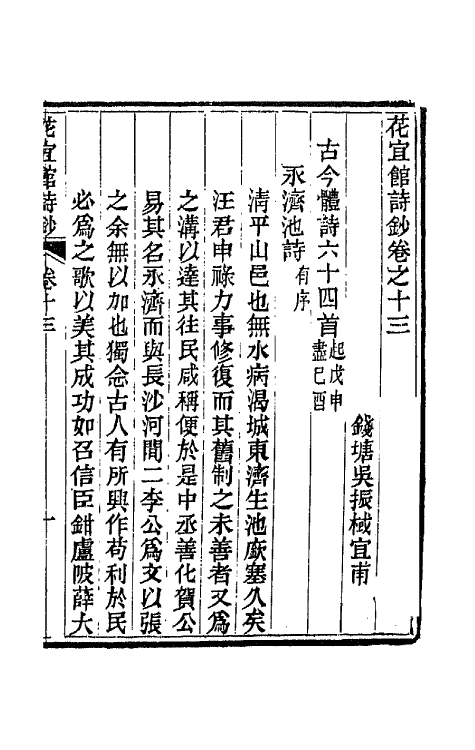 花宜館詩鈔卷之十三
錢塘吳振棫宜甫
古今體詩六十四首起戊申盡己酉
永濟池詩有序
清平山邑也無水病渴城東濟生池廞塞久矣
汪君申祿力事修復而其舊制之未善者又爲
之溝以達其往民咸稱便於是中丞善化賀公
易其名永濟而與長沙河間二李公爲文以張
之余無以加也獨念古人有所興作苟利於民
必爲之歌以美其成功如召信臣鉗盧陂薛大
花宜館詩鈔 卷十三 一